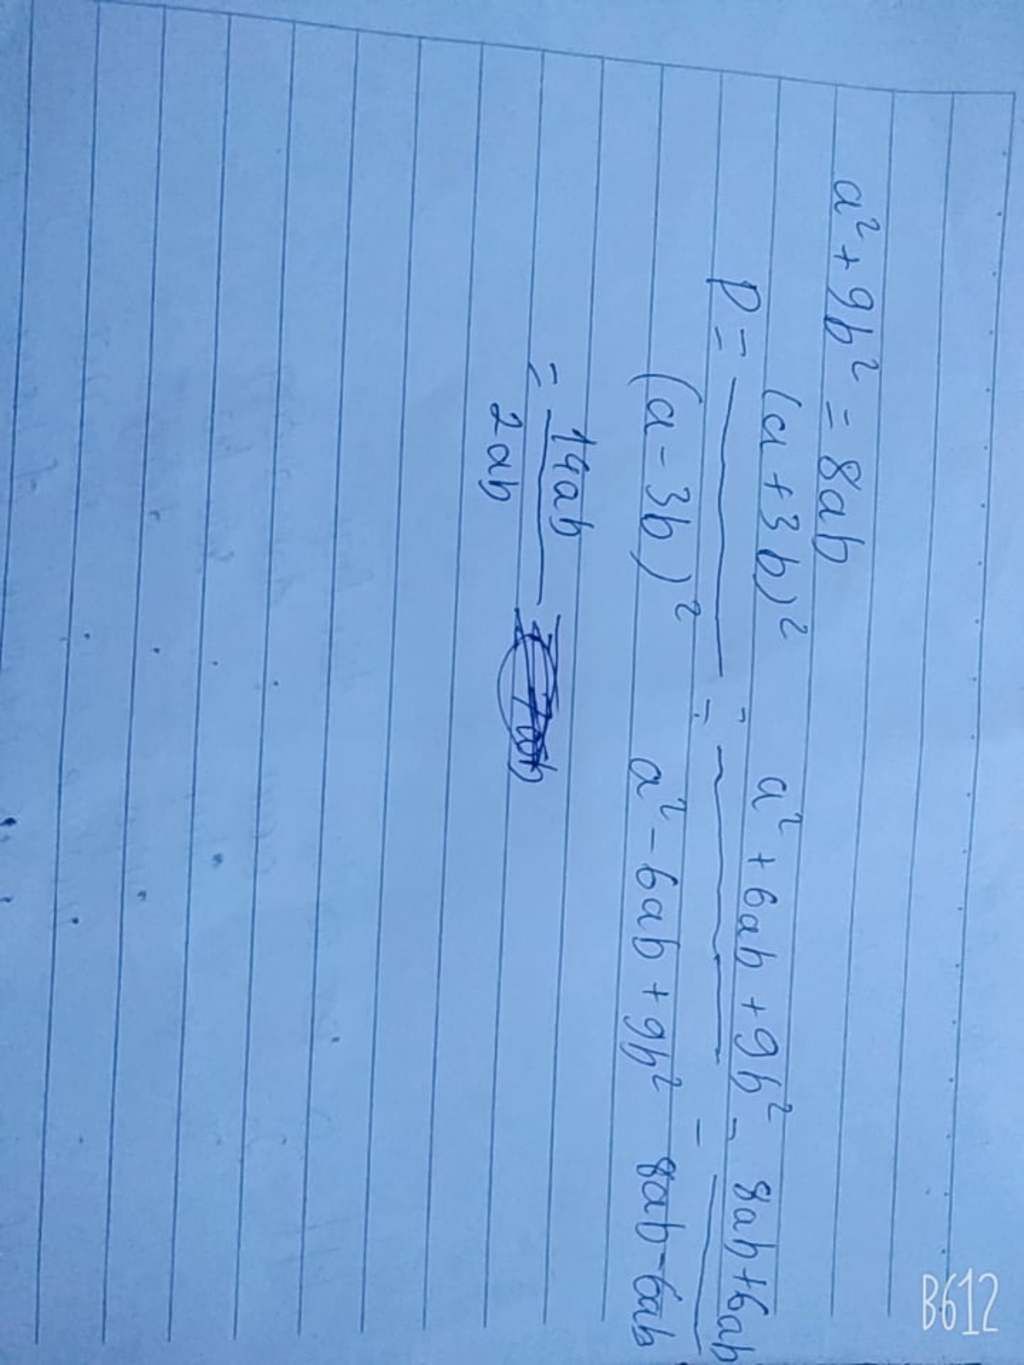 a² + 9b² = 8ab
P = (a + 3b)² / (a - 3b)² = a² + 6ab + 9b² / a² - 6ab + 9b² = 8ab + 6ab / 8ab - 6ab
= 14ab / 2ab
B612